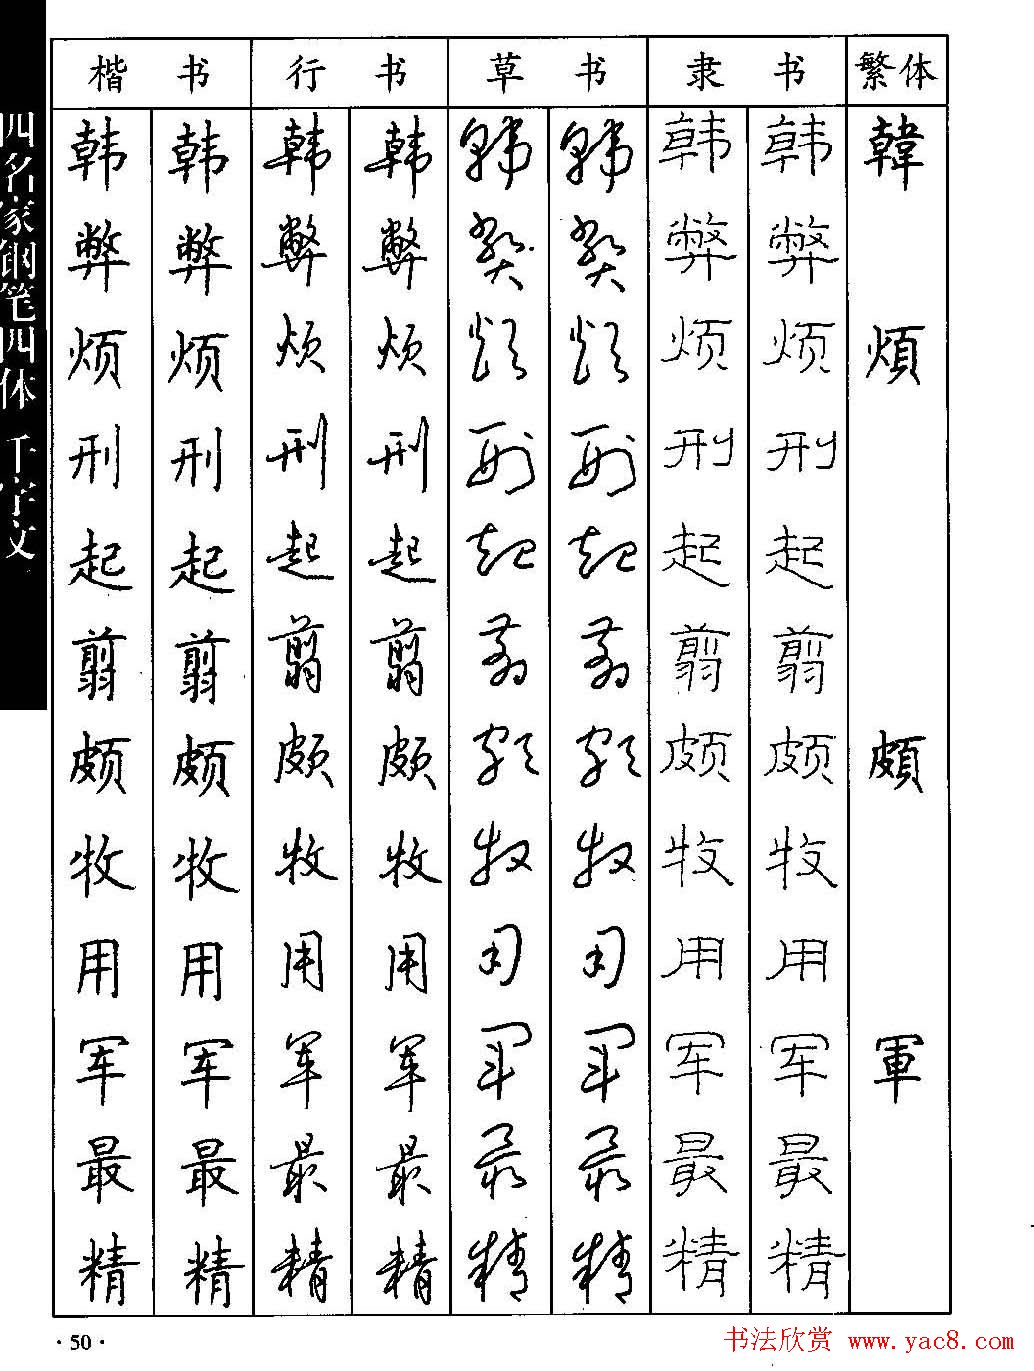 四名家钢笔四体 千字文
楷 书 行 书 草 书 隶 书 繁体
韩 韩 韩 韩 韩 韩 韩 韩 韓
弊 弊 弊 弊 弊 弊 弊 弊
烦 烦 烦 烦 烦 烦 烦 烦 煩
刑 刑 刑 刑 刑 刑 刑 刑
起 起 起 起 起 起 起 起
翦 翦 翦 翦 翦 翦 翦 翦
颇 颇 颇 颇 颇 颇 颇 颇 頗
牧 牧 牧 牧 牧 牧 牧 牧
用 用 用 用 用 用 用 用
军 军 军 军 军 军 军 军 軍
最 最 最 最 最 最 最 最
精 精 精 精 精 精 精 精
·50·
书法欣赏 www.yac8.com